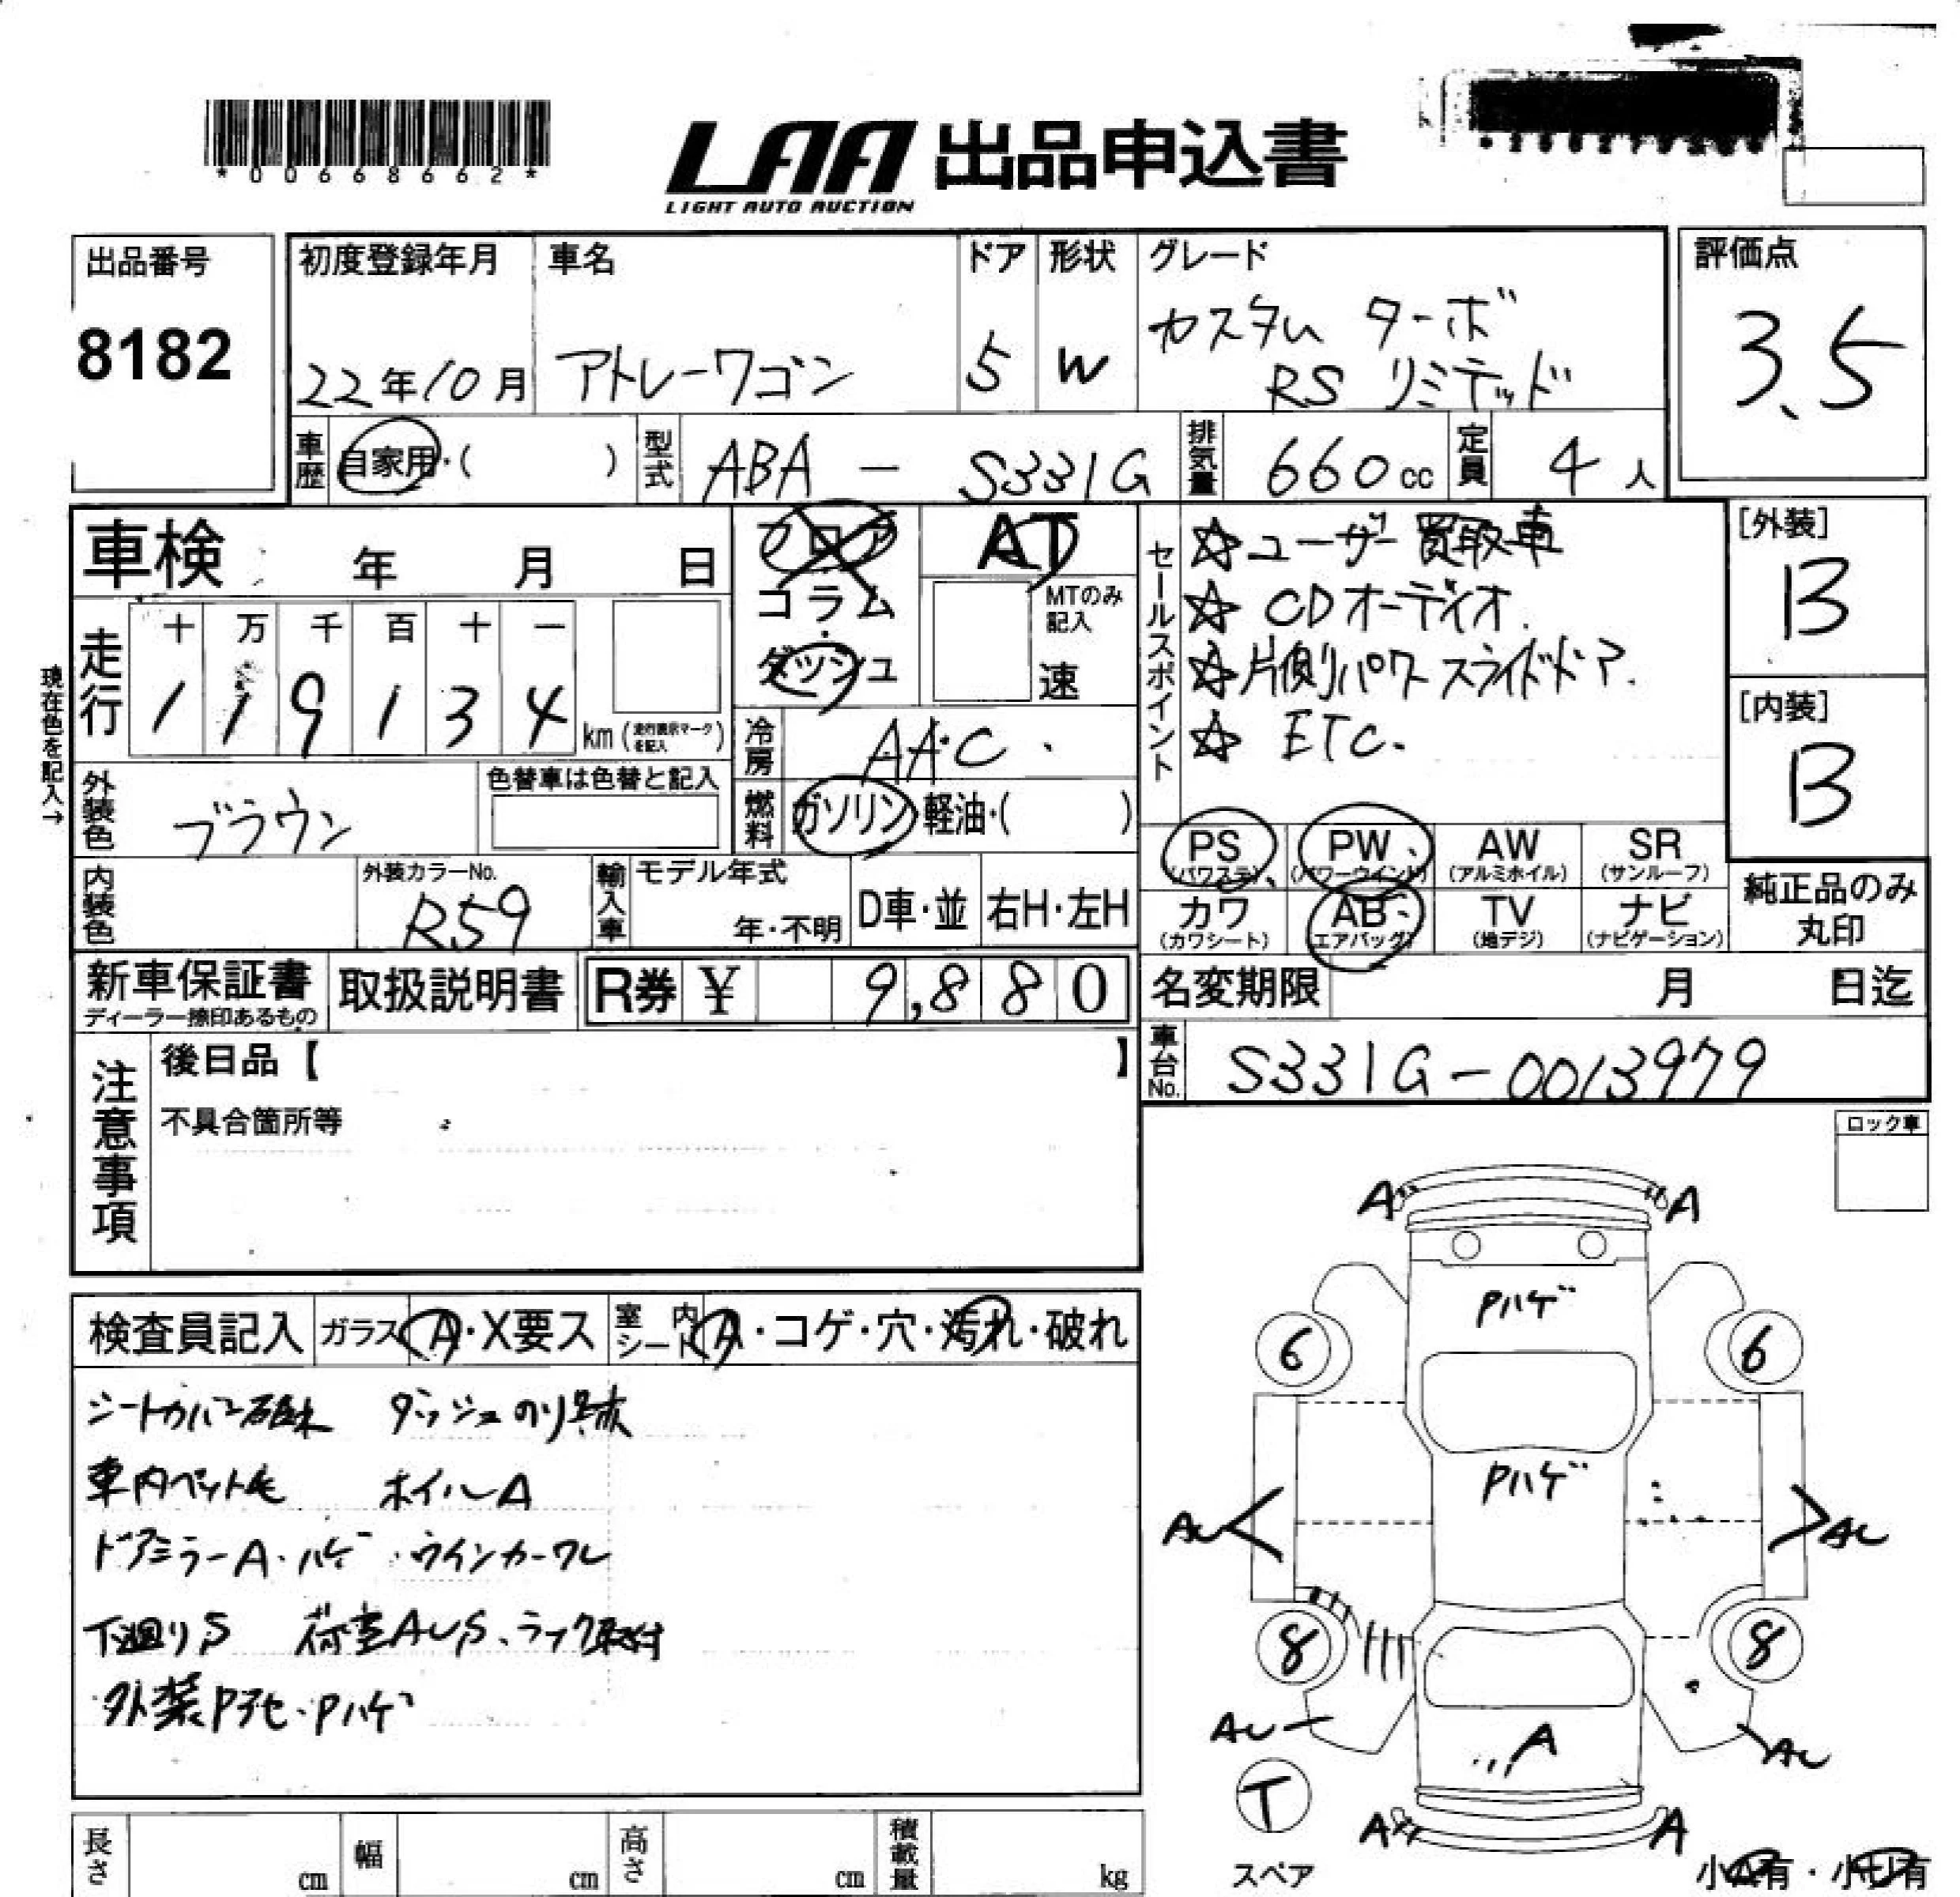 *00668662*
LAA 出品申込書
LIGHT AUTO AUCTION
出品番号
8182
初度登録年月
22年10月
車名
アトレーワゴン
ドア
5
形状
W
グレード
カスタム ターボ
RS リミテッド
評価点
3.5
車歴
自家用・( )
型式
ABA - S331G
排気量
660cc
定員
4人
車検 年 月 日
フロア
コラム
ダッシュ
AT
MTのみ記入
速
セールスポイント
☆ユーザー買取車
☆ CDオーディオ.
☆片側パワースライドドア.
☆ ETC.
[外装]
B
[内装]
B
現在色を記入→
走行
十 万 千 百 十 一
1 1 9 1 3 4
km (走行表示マークを記入)
冷房
AAC
燃料
ガソリン・軽油・( )
外装色
ブラウン
色替車は色替と記入
内装色
外装カラーNo.
R59
輸入車
モデル年式
年・不明
D車・並
右H・左H
PS (パワステ)
PW (パワーウインド)
AW (アルミホイル)
SR (サンルーフ)
カワ (カワシート)
AB (エアバッグ)
TV (地デジ)
ナビ (ナビゲーション)
純正品のみ
丸印
新車保証書
ディーラー捺印あるもの
取扱説明書
R券 ¥ 9,880
名変期限 月 日迄
車台No.
S331G-0013979
注意事項
後日品【 】
不具合箇所等
ロック車
検査員記入
ガラス A・X要ス
室内シート A・コゲ・穴・汚れ・破れ
シートカバー破れ ダッシュのり跡
車内ペット毛 ホイルA
ドアミラーA・ハゲ・ウインカーワレ
下廻りS 荷室AUS、ラック取付
外装Pアセ・Pハゲ
A A
Pハゲ
6 6
Pハゲ
AU AU
8 8
AU AU
A
T
スペア
A A
小A有・小U有
長さ cm
幅 cm
高さ cm
積載量 kg